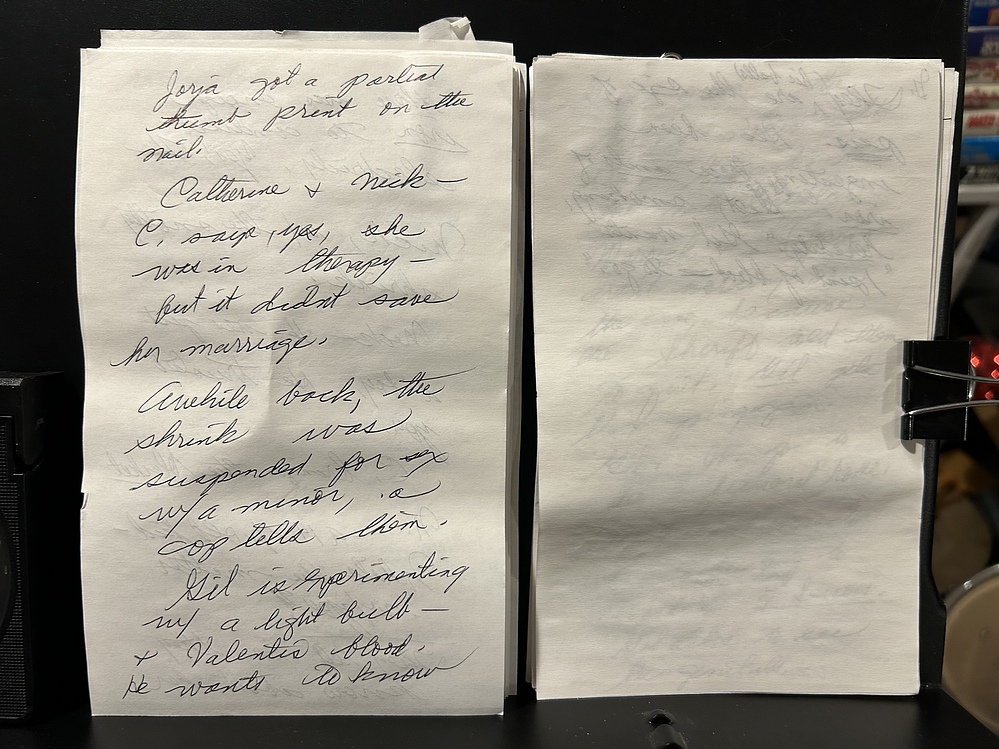 Jorja got a partial
thumb print on the
nail.
Catherine + Nick —
C. says, yes, she
was in therapy —
but it didnt save
her marriage.
Awhile back, the
shrink was
suspended for sex
w/ a minor, a
cop tells them.
Gil is experimenting
w/ a light bulb —
+ Valentis blood.
He wants to know